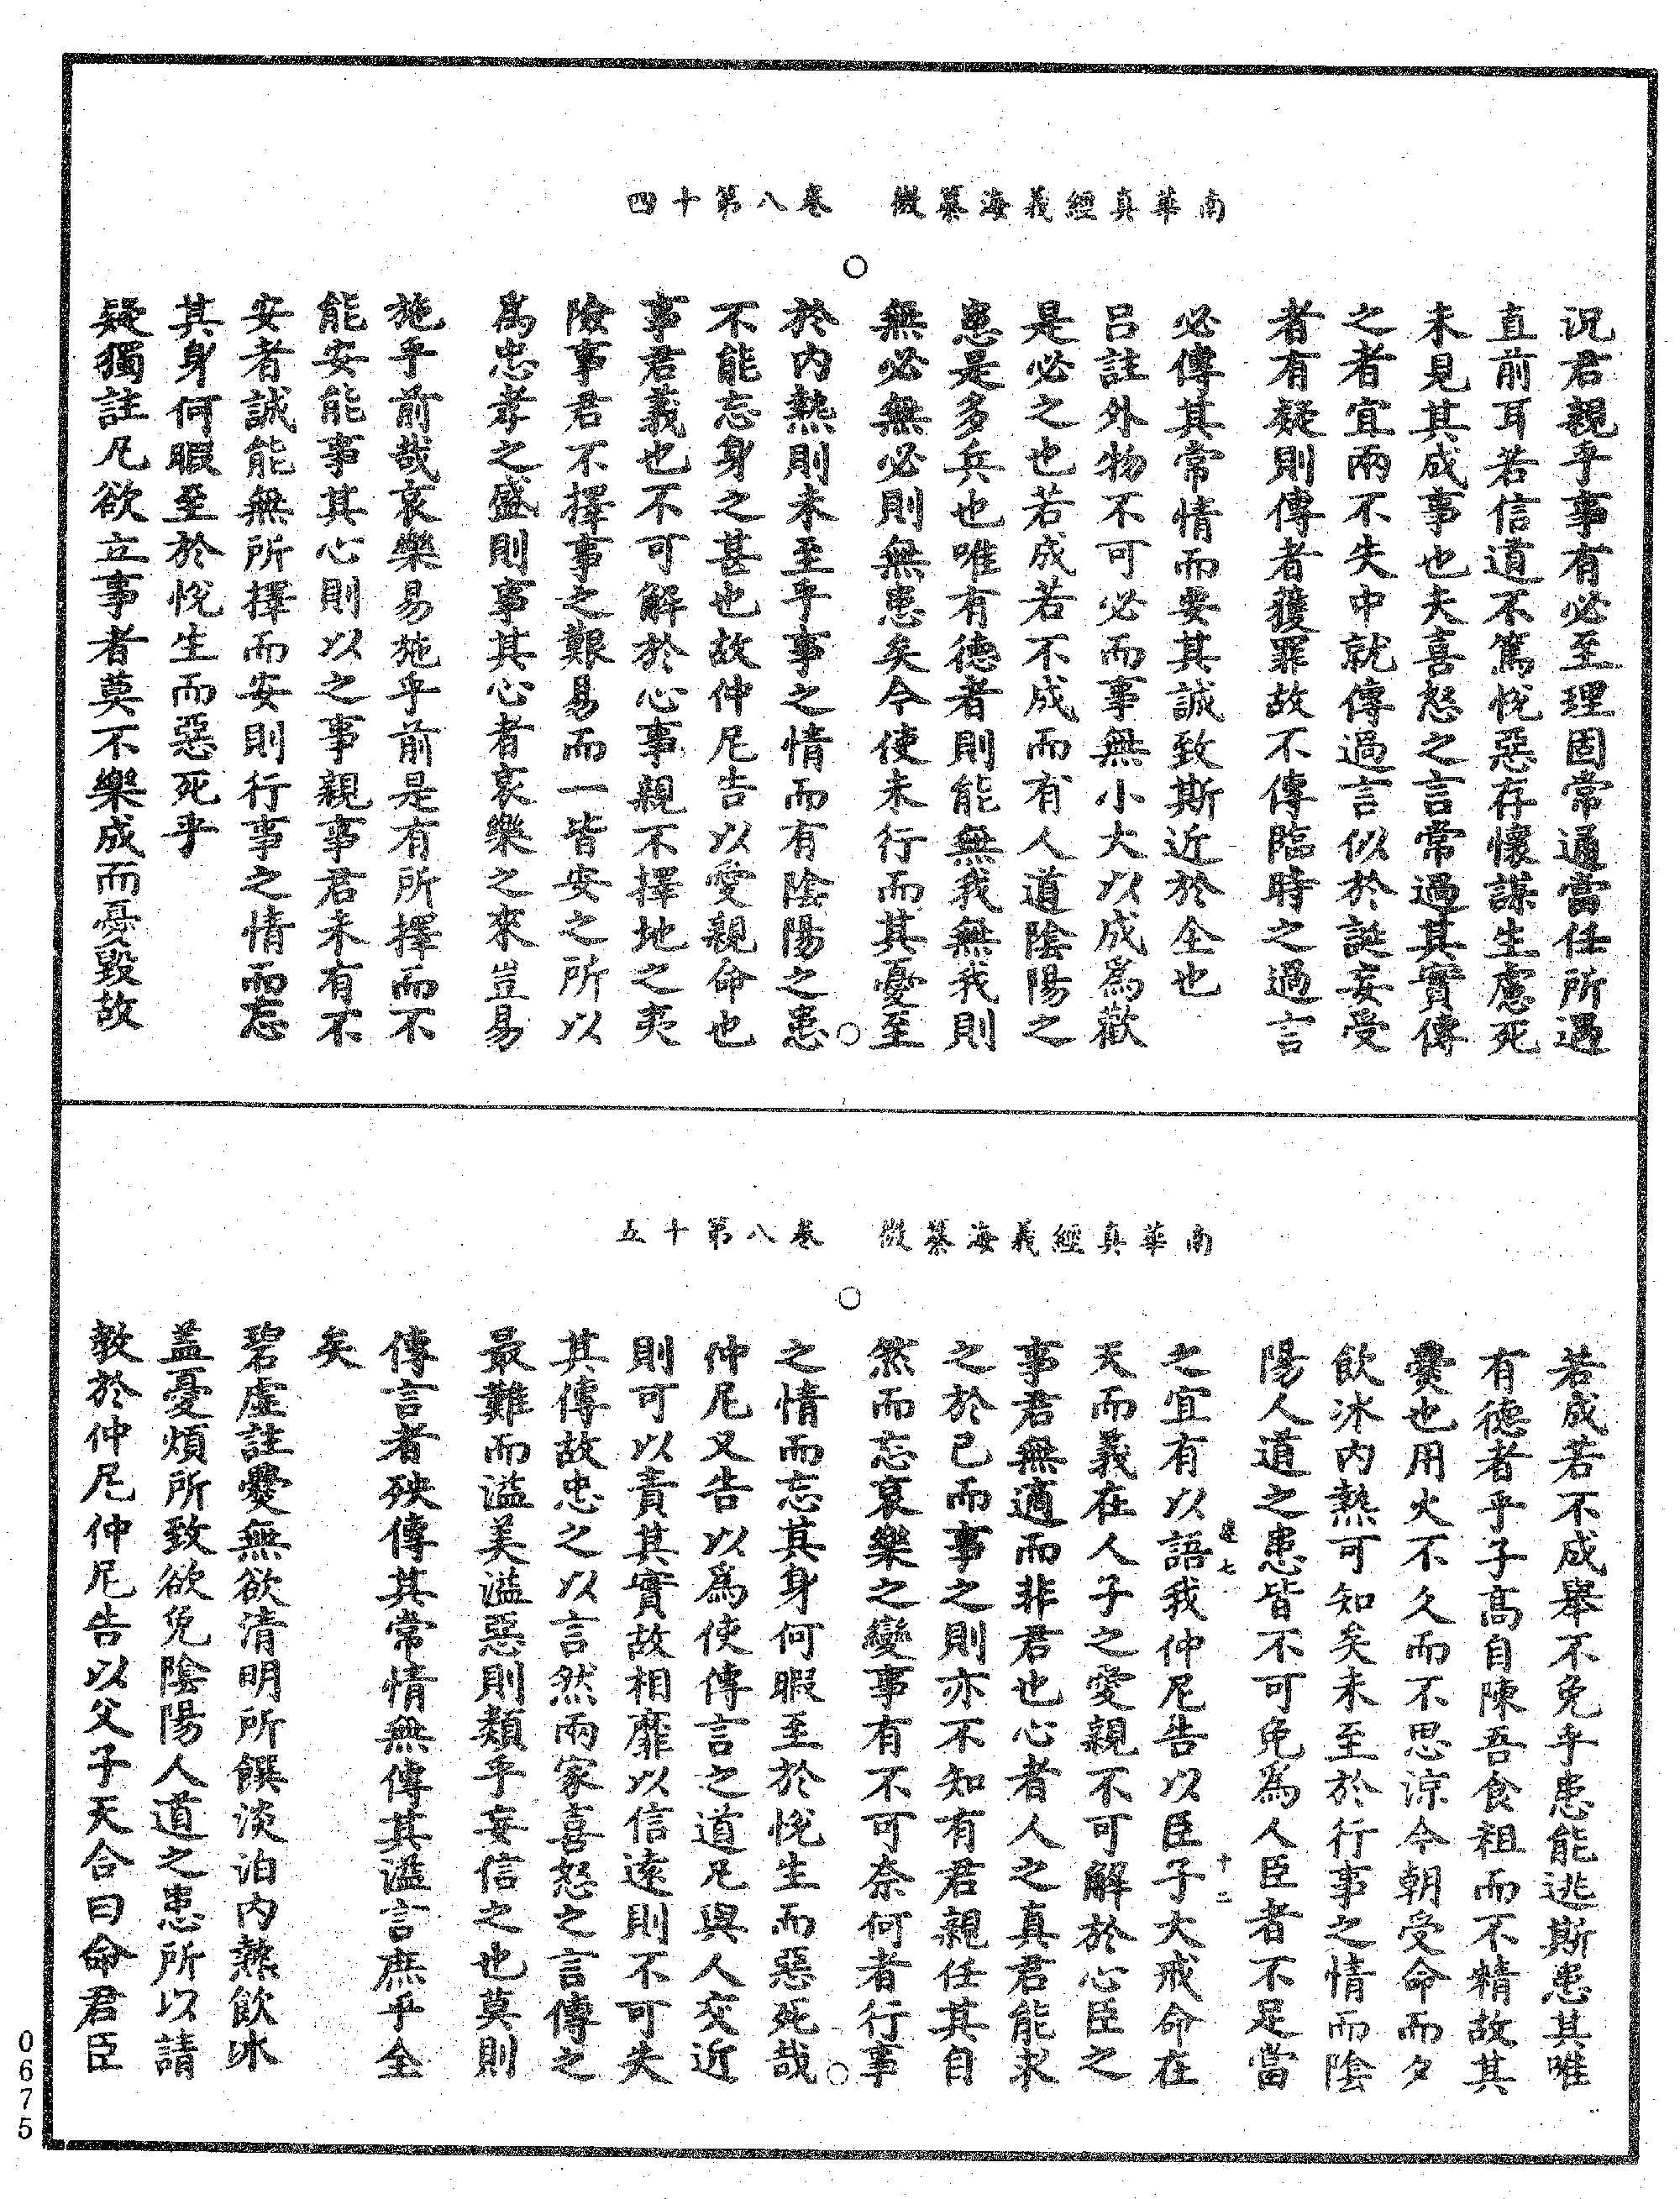 南華真經義海纂微　卷八第十四
況君親乎事有必至理固常通當任所遇
直前耳若信道不篤悅惡存懷謀生慮死
未見其成事也夫喜怒之言常過其實傳
之者宜兩不失中就傳過言似於誕妄受
者有疑則傳者獲罪故不傳臨時之過言
必傳其常情而安其誠致斯近於全也
呂註外物不可必而事無小大以成為歡
是必之也若成若不成而有人道陰陽之
患是多兵也唯有德者則能無我無我則
無必無必則無患矣今使未行而其憂至
於內熱則未至乎事之情而有陰陽之患
不能忘身之甚也故仲尼告以愛親命也
事君義也不可解於心事親不擇地之夷
險事君不擇事之艱易而一皆安之所以
為忠孝之盛則事其心者哀樂之來豈易
施乎前哉哀樂易施乎前是有所擇而不
能安能事其心則以之事親事君未有不
安者誠能無所擇而安則行事之情而忘
其身何暇至於悅生而惡死乎
疑獨註凡欲立事者莫不樂成而憂毀故
南華真經義海纂微　卷八第十五
若成若不成舉不免乎患能逃斯患其唯
有德者乎子高自陳吾食粗而不精故其
爨也用火不久而不思涼今朝受命而夕
飲冰內熱可知矣未至於行事之情而陰
陽人道之患皆不可免為人臣者不足當
之宜有以語我仲尼告以臣子大戒命在
天而義在人子之愛親不可解於心臣之
事君無適而非君也心者人之真君能求
之於己而事之則亦不知有君親任其自
然而忘哀樂之變事有不可奈何者行事
之情而忘其身何暇至於悅生而惡死哉
仲尼又告以為使傳言之道凡與人交近
則可以責其實故相靡以信遠則不可失
其傳故忠之以言然兩家喜怒之言傳之
最難而溢美溢惡則類乎妄信之也莫則
傳言者殃傳其常情無傳其溢言庶乎全
矣
碧虛註爨無欲清明所饌淡泊內熱飲冰
盖憂煩所致欲免陰陽人道之患所以請
教於仲尼仲尼告以父子天合曰命君臣
十二
0675